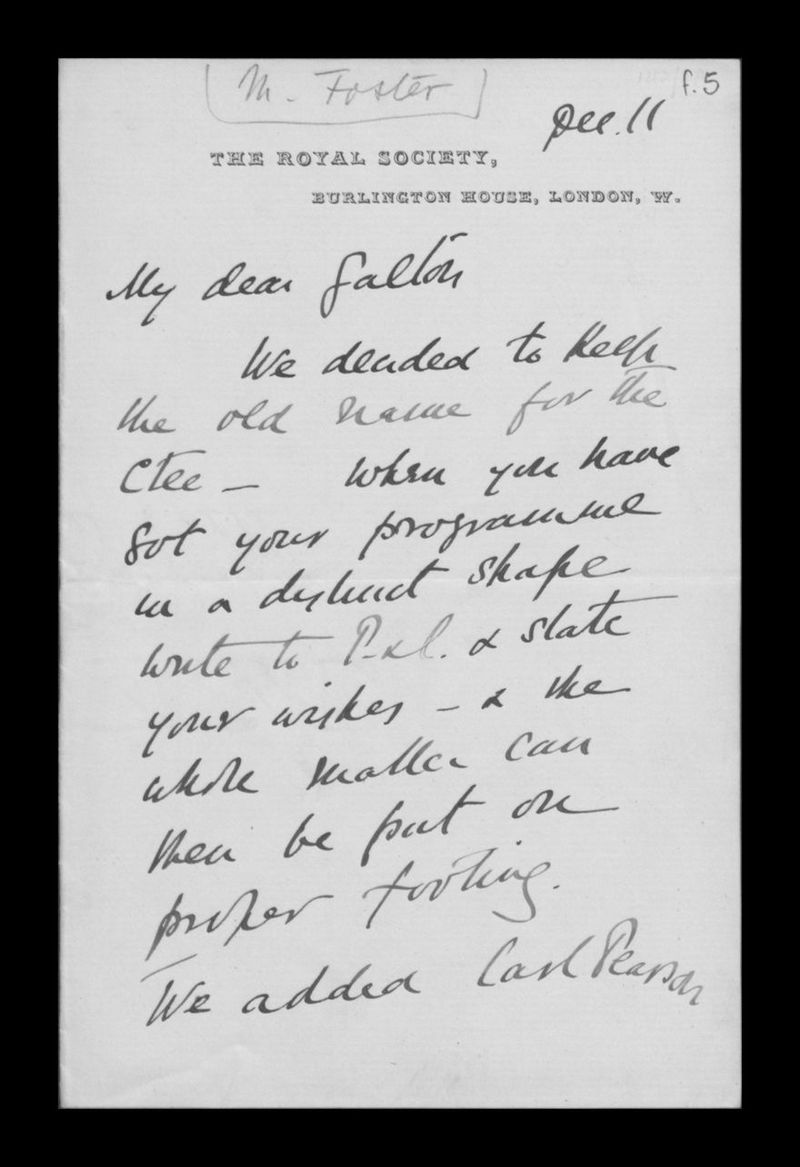 [M. Foster]
f.5
Dec. 11
THE ROYAL SOCIETY,
BURLINGTON HOUSE, LONDON, W.
My dear Galton
We decided to keep
the old name for the
Ctee — When you have
got your programme
in a distinct shape
write to P. & C. & state
your wishes – & the
whole matter can
then be put on
proper footing.
We added Carl Pearson